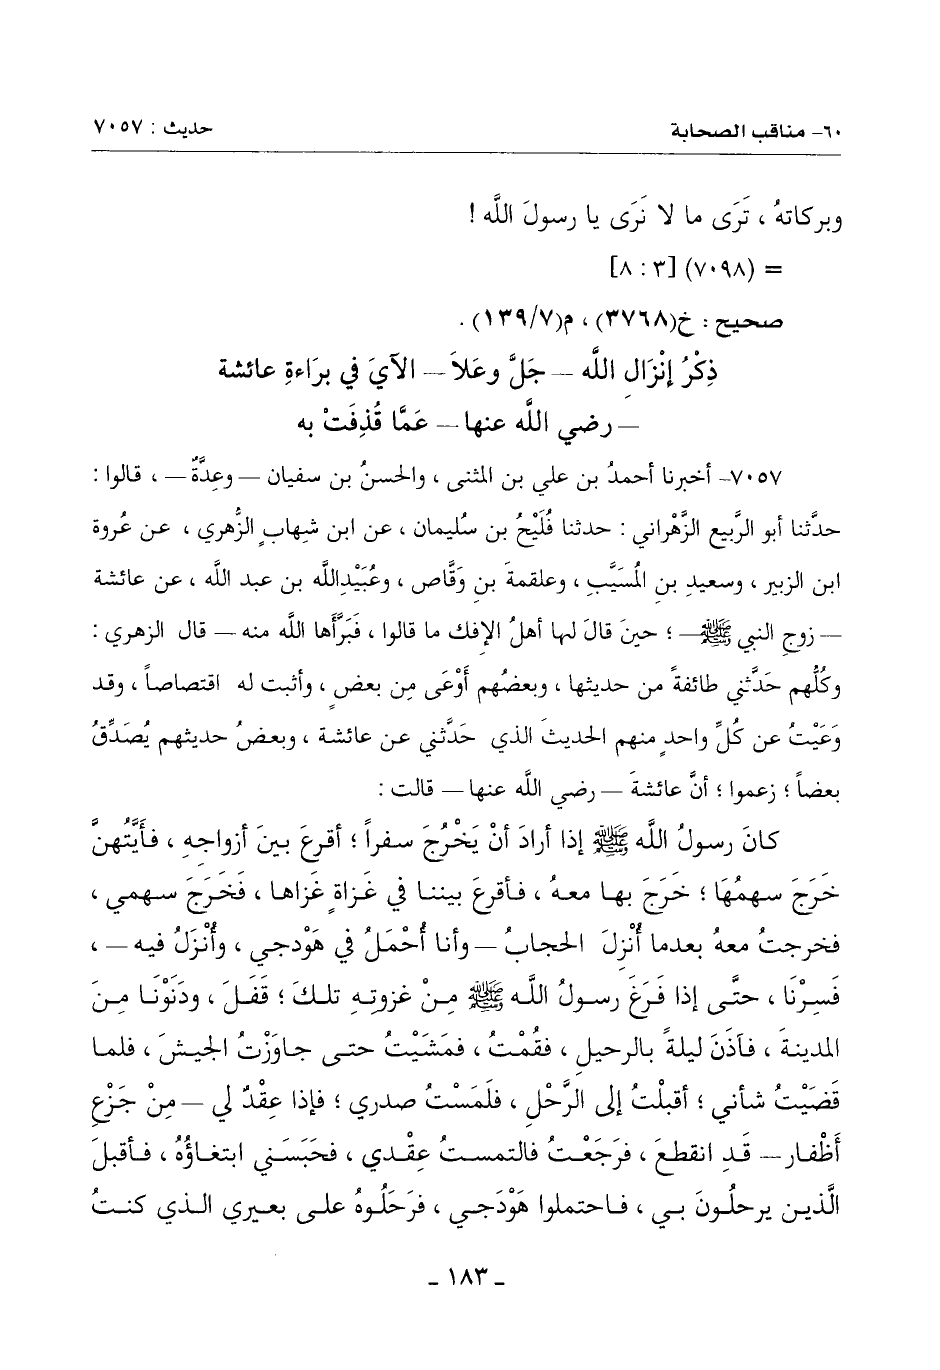 ٦٠- مناقب الصحابة
حديث : ٧٠٥٧
وبركاتهُ ، تَرَى ما لا نَرَى يا رسولَ اللَّه !
= (٧٠٩٨) [٣ : ٨]
صحيح : خ(٣٧٦٨) ، م(٧/١٣٩) .
ذِكْرُ إنْزَالِ اللَّه – جَلَّ وعَلاَ – الآيَ في برَاءةِ عائشة
– رضي اللَّه عنها – عَمَّا قُذِفَتْ به
٧٠٥٧- أخبرنا أحمدُ بن علي بن المثنى ، والحسنُ بن سفيان – وعدَّةٌ – ، قالوا :
حدَّثنا أبو الرَّبيع الزَّهْراني : حدثنا فُلَيْحُ بن سُليمان ، عن ابن شِهابٍ الزُّهري ، عن عُروة
ابن الزبير ، وسعيدِ بنِ المُسَيَّبِ ، وعلقمةَ بنِ وَقَّاص ، وعُبَيْدِاللَّه بن عبد اللَّه ، عن عائشة
– زوجِ النبي ﷺ – ؛ حينَ قالَ لها أهلُ الإفك ما قالوا ، فَبَرَّأَها اللَّه منه – قال الزهري :
وكُلُّهم حَدَّثني طائفةً من حديثها ، وبعضُهم أَوْعَى مِن بعضٍ ، وأثبت له اقتصاصاً ، وقد
وَعَيْتُ عن كُلِّ واحدٍ منهم الحديثَ الذي حَدَّثني عن عائشة ، وبعضُ حديثهم يُصَدِّقُ
بعضاً ؛ زعموا ؛ أنَّ عائشةَ – رضي اللَّه عنها – قالت :
كانَ رسولُ اللَّه ﷺ إذا أرادَ أنْ يَخْرُجَ سفراً ؛ أقرعَ بينَ أزواجهِ ، فأيَّتُهنَّ
خَرَجَ سهمُهَا ؛ خَرَجَ بها معهُ ، فأقرعَ بيننا في غَزاةٍ غَزاها ، فَخَرَجَ سهمي ،
فخرجتُ معهُ بعدما أُنْزِلَ الحجابُ – وأنا أُحْمَلُ في هَوْدجي ، وأُنْزَلُ فيه – ،
فَسِرْنَا ، حتَّى إذا فَرَغَ رسولُ اللَّه ﷺ مِنْ غزوتِه تلكَ ؛ قَفَلَ ، ودَنَوْنَا مِنَ
المدينةِ ، فآذَنَ ليلةً بالرحيلِ ، فقُمْتُ ، فمَشَيْتُ حتى جاوَزْتُ الجيشَ ، فلما
قَضَيْتُ شأني ؛ أقبلْتُ إلى الرَّحْلِ ، فلَمَسْتُ صدري ؛ فإذا عِقْدٌ لي – مِنْ جَزْعِ
أَظْفار – قَدِ انقطعَ ، فرَجَعْتُ فالتمستُ عِقْدي ، فحَبَسَني ابتغاؤُهُ ، فأقبلَ
الَّذين يرحلُونَ بي ، فاحتملوا هَوْدَجي ، فرَحَلُوهُ على بعيري الذي كنتُ
- ١٨٣ -